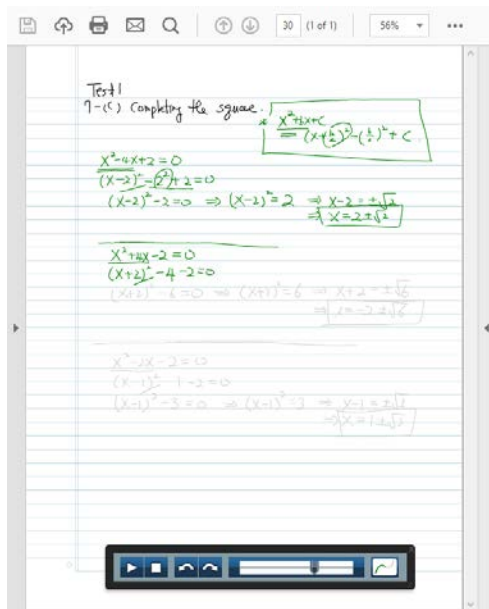 30 (1 of 1) 56%
Test 1
7-(c) Completing the square.
* x²+bx+c
= (x+(b/2))²-(b/2)²+c.
x²-4x+2=0
(x-2)²-2²+2=0
(x-2)²-2=0 ⇒ (x-2)²=2 ⇒ x-2=±√2
⇒ x=2±√2
x²+4x-2=0
(x+2)²-4-2=0
(x+2)²-6=0 ⇒ (x+2)²=6 ⇒ x+2=±√6
⇒ x=-2±√6
x²-2x-2=0
(x-1)²-1-2=0
(x-1)²-3=0 ⇒ (x-1)²=3 ⇒ x-1=±√3
⇒ x=1±√3